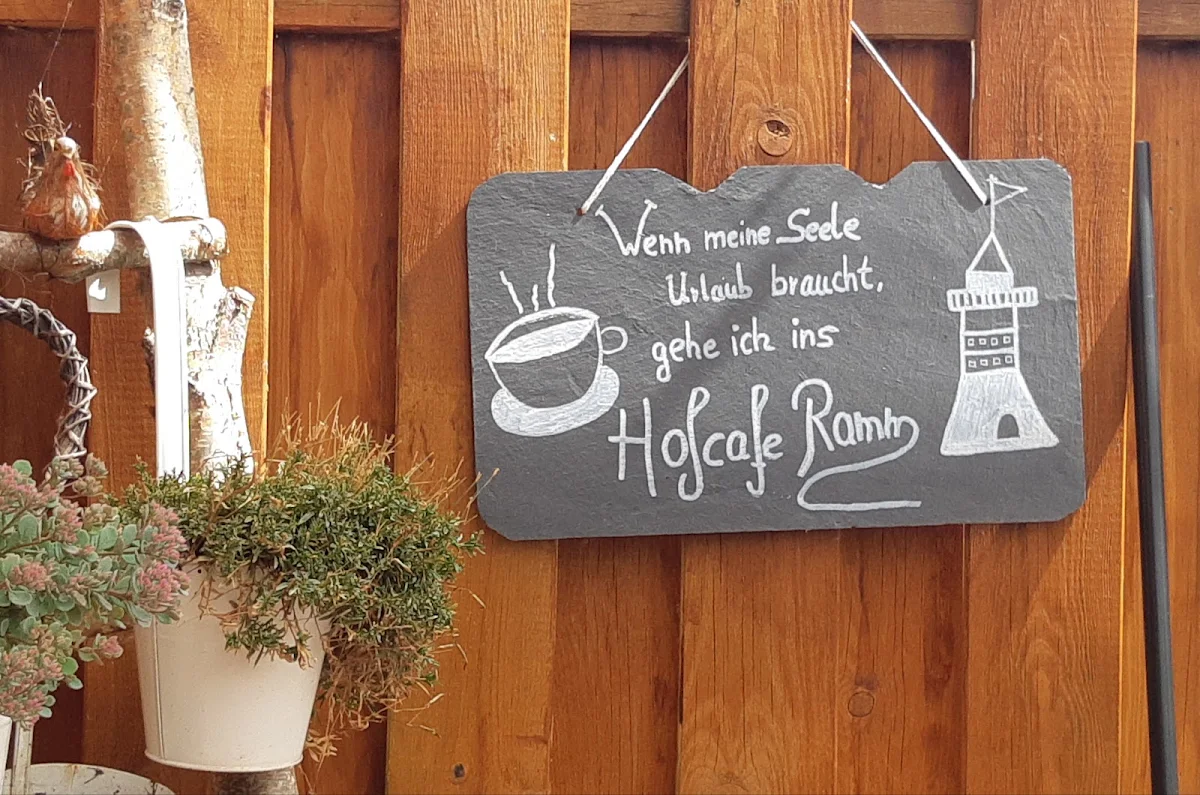 Wenn meine Seele
Urlaub braucht,
gehe ich ins
Hofcafe Ramm